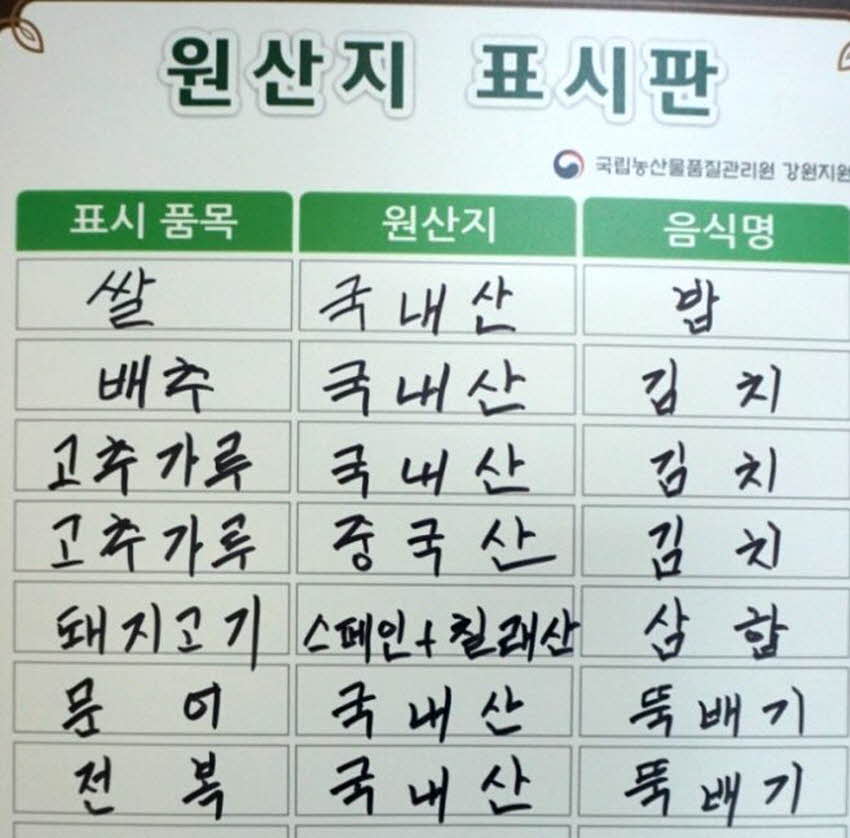 원산지 표시판
국립농산물품질관리원 강원지원
표시 품목 원산지 음식명
쌀 국내산 밥
배추 국내산 김치
고추가루 국내산 김치
고추가루 중국산 김치
돼지고기 스페인+칠래산 삼합
문어 국내산 뚝배기
전복 국내산 뚝배기